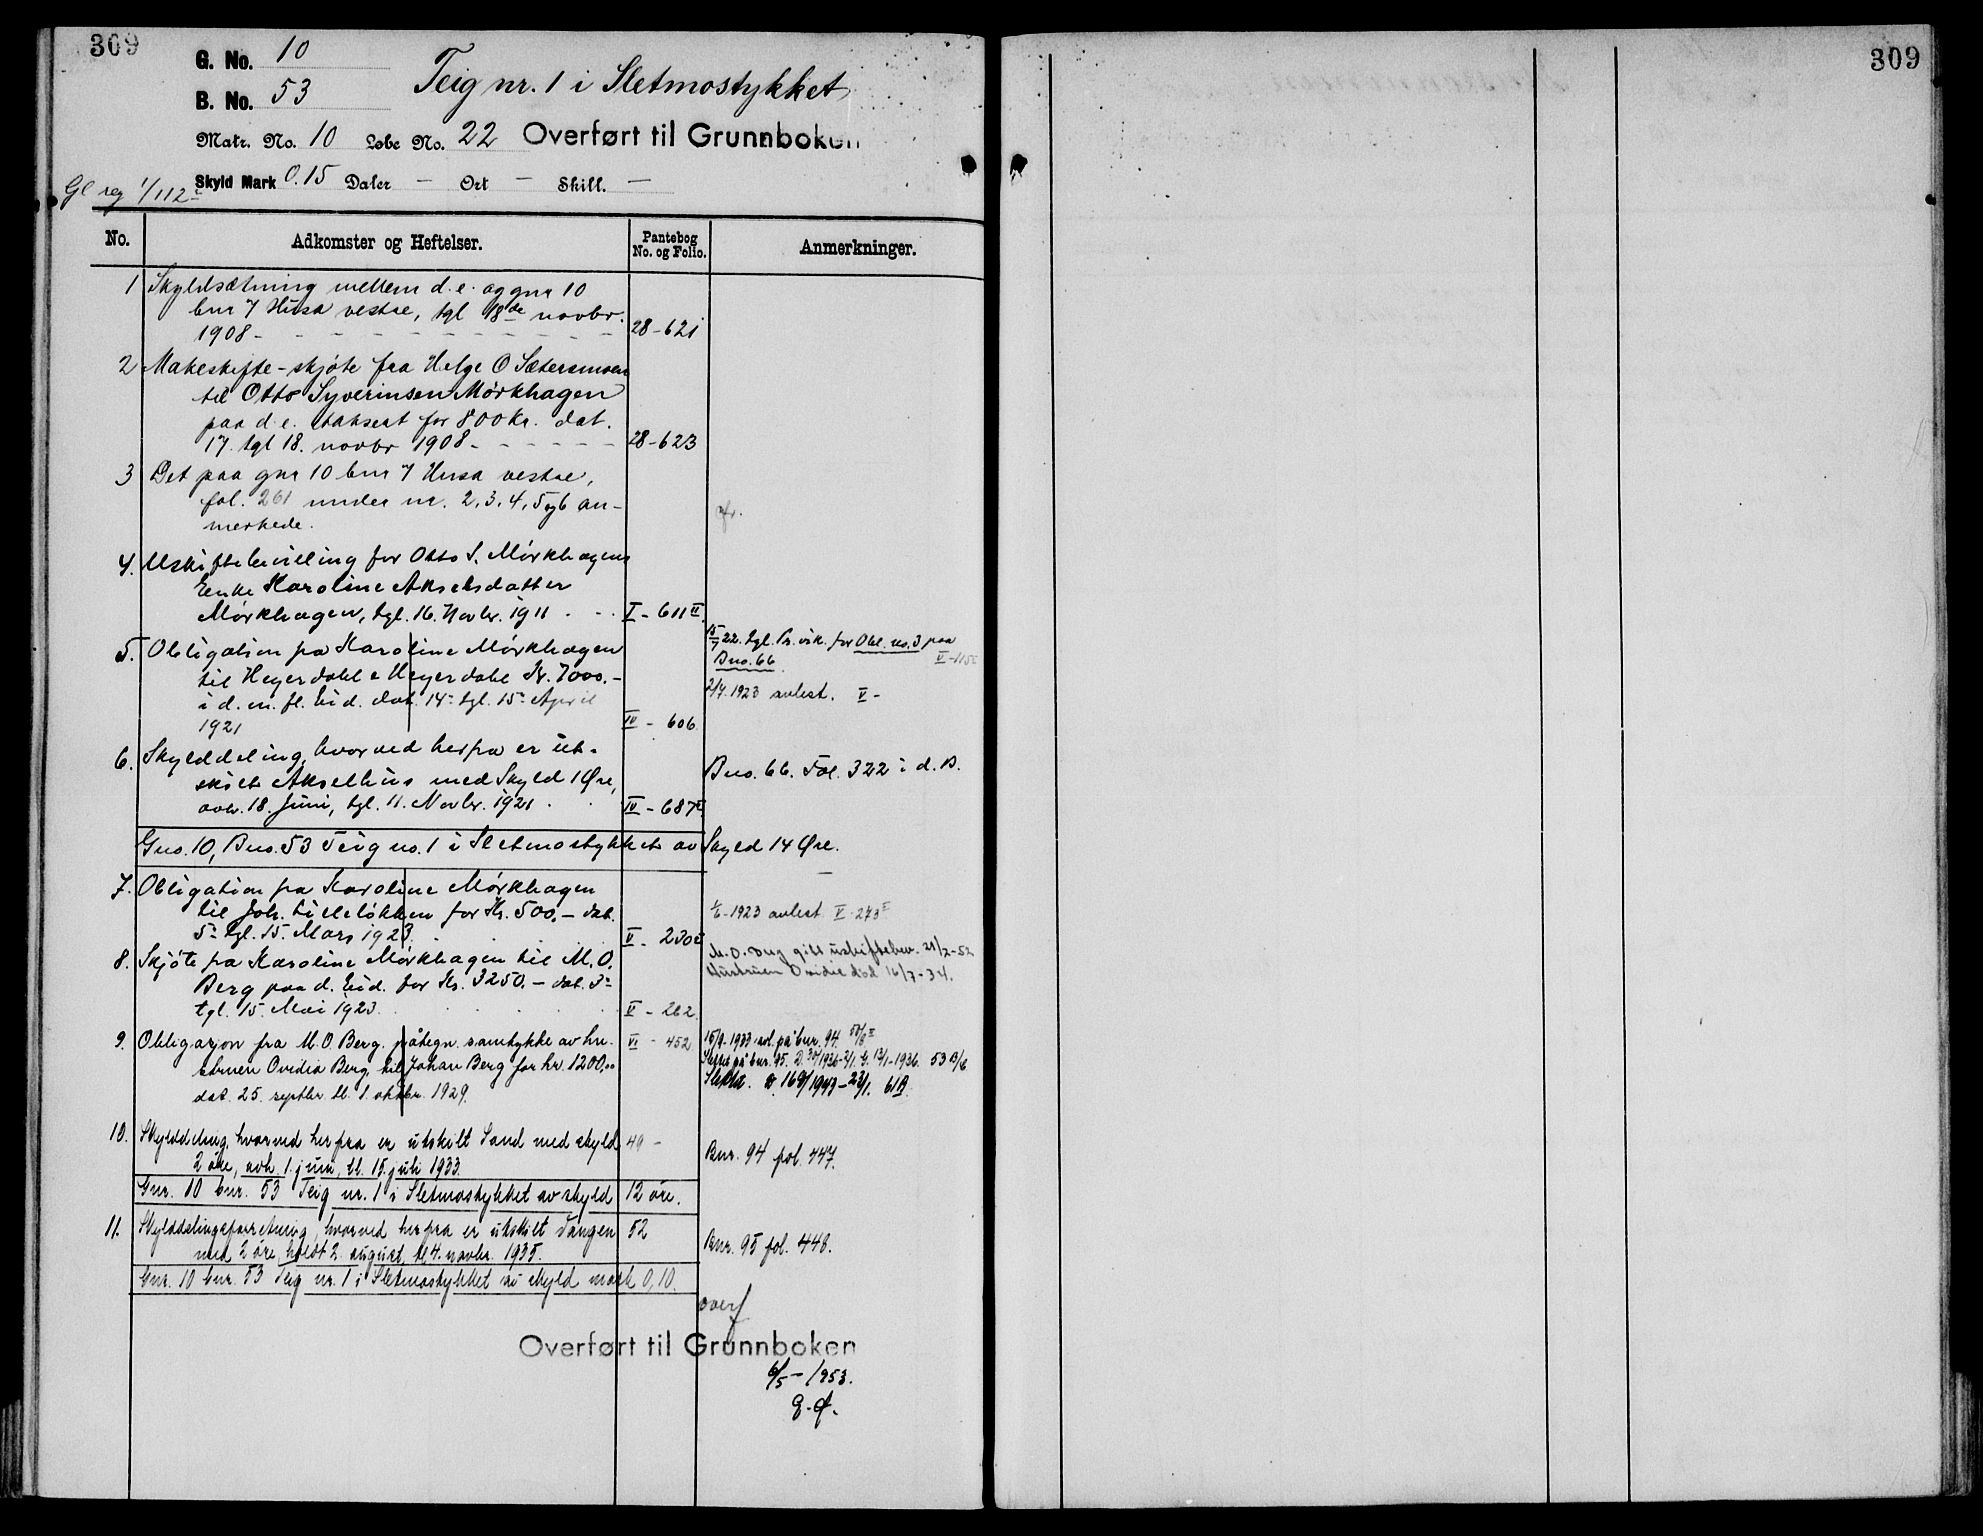 309
309
G. No. 10
B. No. 53
Teig nr. 1 i Sletmostykket
Matr. No. 10 Løbe No. 22 Overført til Grunnboken
Skyld Mark 0.15 Daler — Ort — Skill. —
Gl reg 1/112
No. Adkomster og Heftelser. Pantebog No. og Folio. Anmerkninger.
1 Skyldsætning mellem d. e. og gnr 10
bnr 7 Husa vestre, tgl 18de novbr.
1908 - 28-621
2 Makeskifte-skjøte fra Helge O Sætersmoen
til Otto Syverinsen Mørkhagen
paa d. e. taksert for 800 Kr. dat.
17. tgl 18. novbr 1908 - 28-623
3 Det paa gnr 10 bnr 7 Husa vestre,
fol. 261 under nr. 2, 3, 4, 5 og 6 an-
merkede.
4. Uskiftebevilling for Otto S. Mørkhagens
Enke Karoline Akselsdatter
Mørkhagen, tgl. 16. Novbr. 1911 I - 611 II
5. Obligation fra Karoline Mørkhagen
til Heyerdahl & Heyerdahl Kr. 7000.-
i d. m. fl. Eid. dat. 14. tgl. 15. April
1921 IV - 606
15/7 22. tgl. Pr. vik. for Obl. no. 3 paa
Bno. 66 V-115
2/4. 1923 avlest. V -
6. Skylddeling, hvorved herfra er ut-
skilt Akselhus med Skyld 1 Øre,
avh. 18. Juni, tgl. 11. Novbr. 1921 IV - 687
Bno. 66. Fol. 322 i d. B.
Gno. 10, Bno. 53 Teig no. 1 i Sletmostykket av Skyld 14 Øre.
7. Obligation fra Karoline Mørkhagen
til Joh. Lilleløkken for Kr. 500.- dat.
5. tgl. 15. Mars 1923. V - 230
1/6-1923 avlest V-273
8. Skjøte fra Karoline Mørkhagen til M. O.
Berg paa d. Eid. for Kr. 3250.- dat. 3.
tgl. 15. Mai 1923. V - 262
M. O. Berg gitt uskiftebev. 21/2-52
Hustruen Ovidie død 16/7-34.
9. Obligasjon fra M. O. Berg. påtegn. samtykke av hu-
struen Ovidia Berg, til Johan Berg for kr. 1200,00
dat. 25. septbr. tl. 1. oktbr. 1929. VI - 452
15/9. 1933 avl. på bnr. 94.
Slettet på bnr. 95. 53
Slettet. 168/1943-23/1. 61B
10. Skylddeling, hvorved herfra er utskilt Sand med skyld
2 øre, avh. 1. juni, tl. 15. juli 1933.
Bnr. 94 fol. 447.
Gnr. 10 bnr. 53 Teig nr. 1 i Sletmostykket av skyld 12 øre.
11. Skylddelingsforretning, hvorved herfra er utskilt Vangen 52
med 2 øre, holdt 2. august, tl. 4. novbr. 1935.
Bnr. 95 fol. 448.
Gnr. 10 bnr. 53 Teig nr. 1 i Sletmostykket av skyld mark 0,10.
overf
Overført til Grunnboken
6/5-1953.